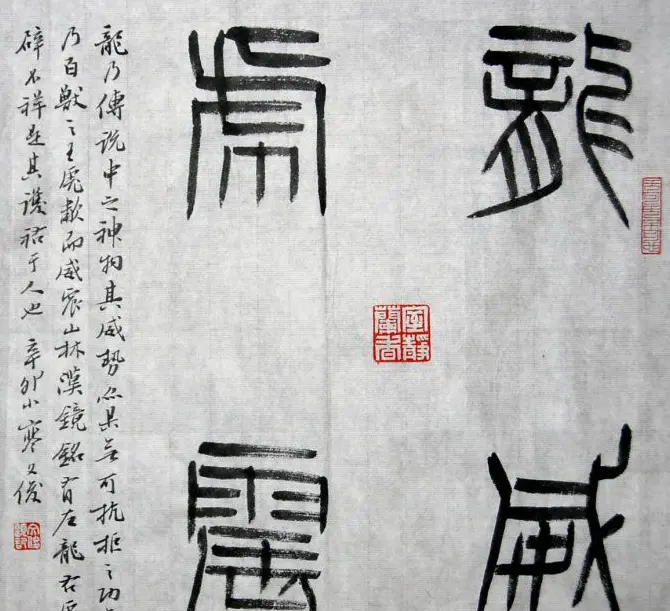 龍威
虎震
龍乃傳說中之神物其威勢必具無可抗拒之功
乃百獸之王虎歗而威震山林漢鏡銘有左龍右虎
辟不祥是其護祐于人也 辛卯小寒文俊
室靜蘭香